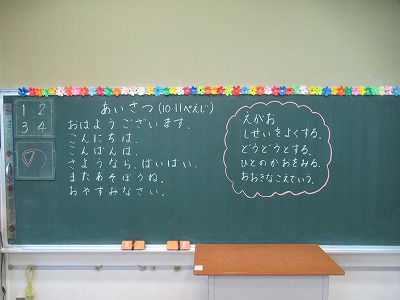 1 2
3 4
の
あいさつ(10.11ぺえじ)
おはようございます.
こんにちは.
こんばんは.
さようなら.ばいばい.
またあそぼうね.
おやすみなさい.
えがお
しせいをよくする.
どうどうとする.
ひとのかおをみる.
おおきなこえでいう.